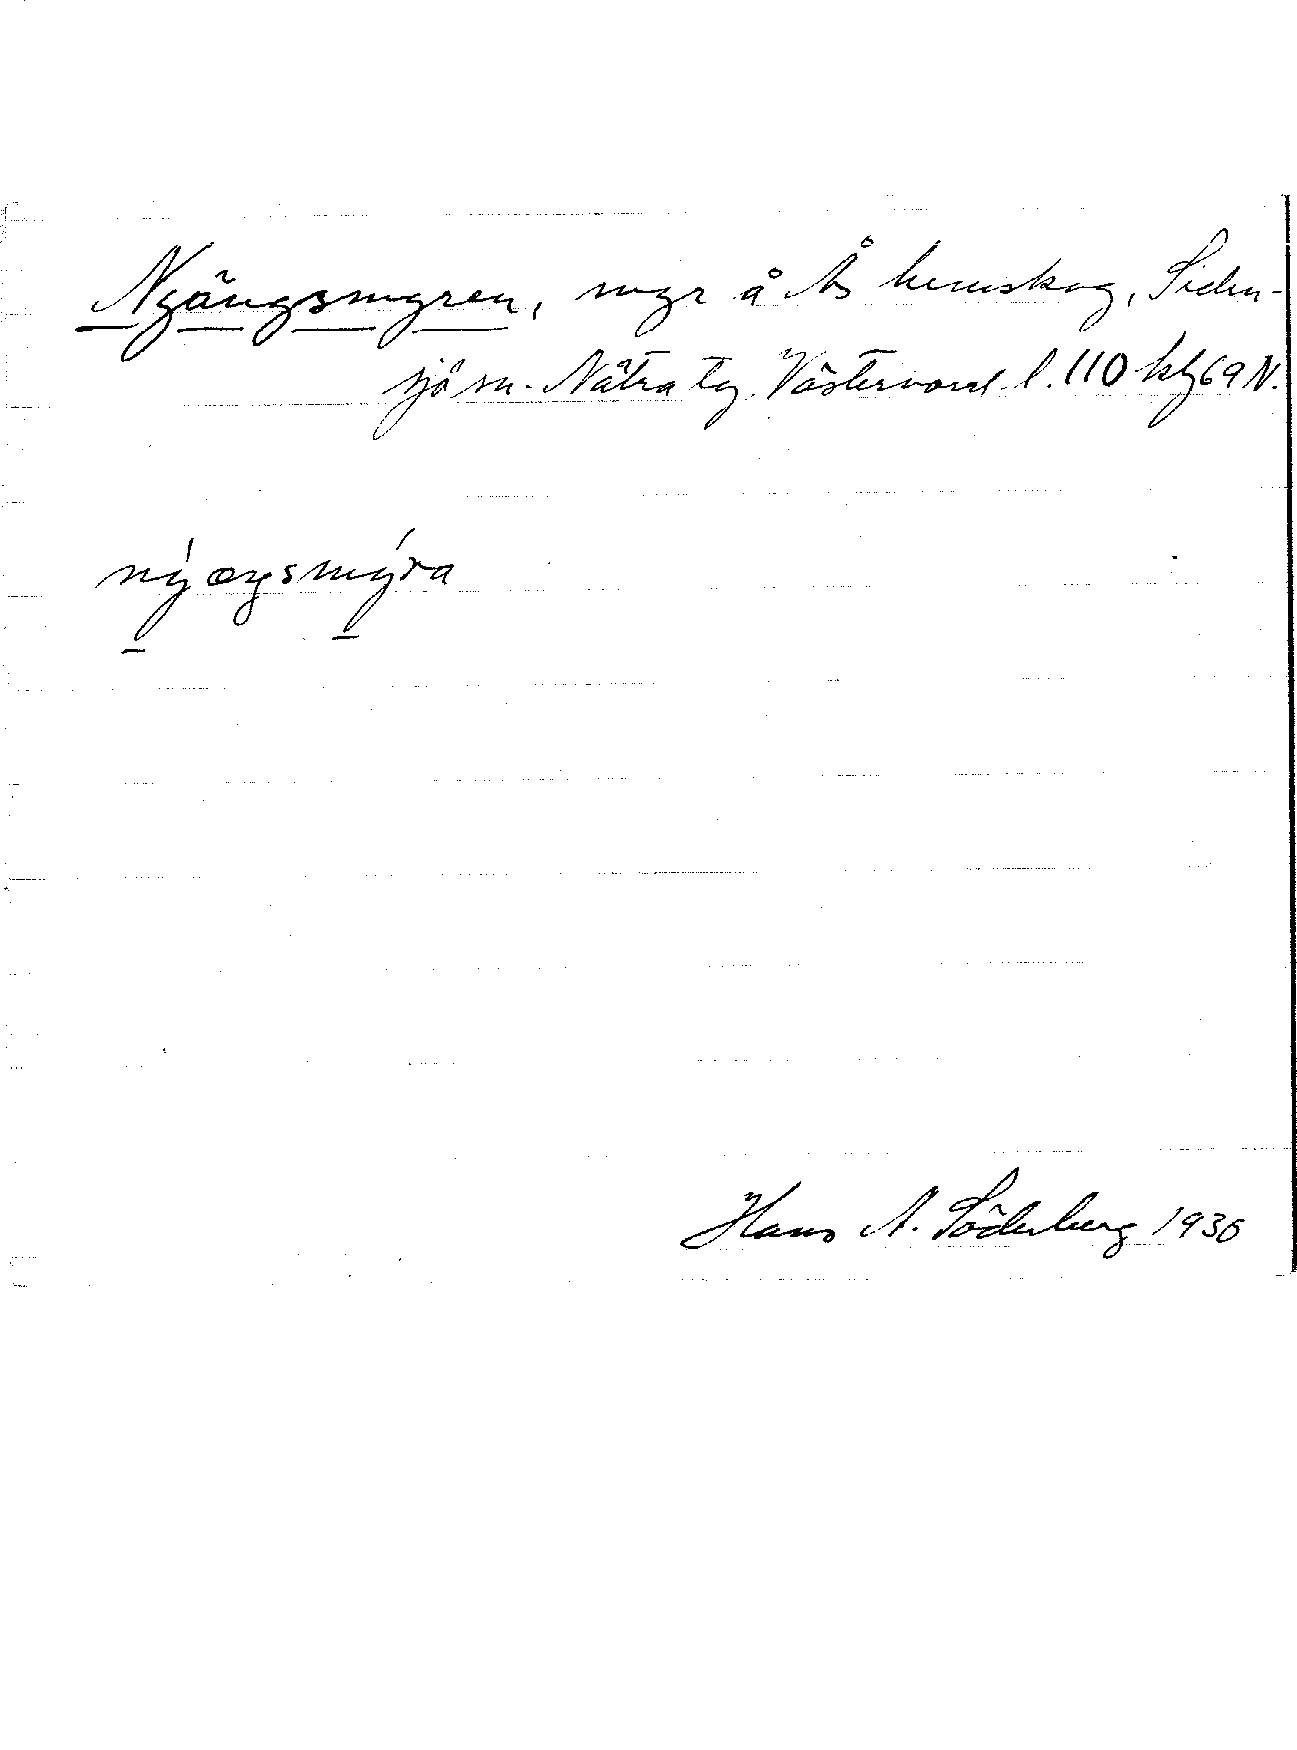 Nyängsmyren, myr å Ås hemskog, Siden-
sjö sn. Nätra tg. Västernorrl. l. 110 hlj 69 N.
nýæŋsmýra
Hans A. Söderberg 1936